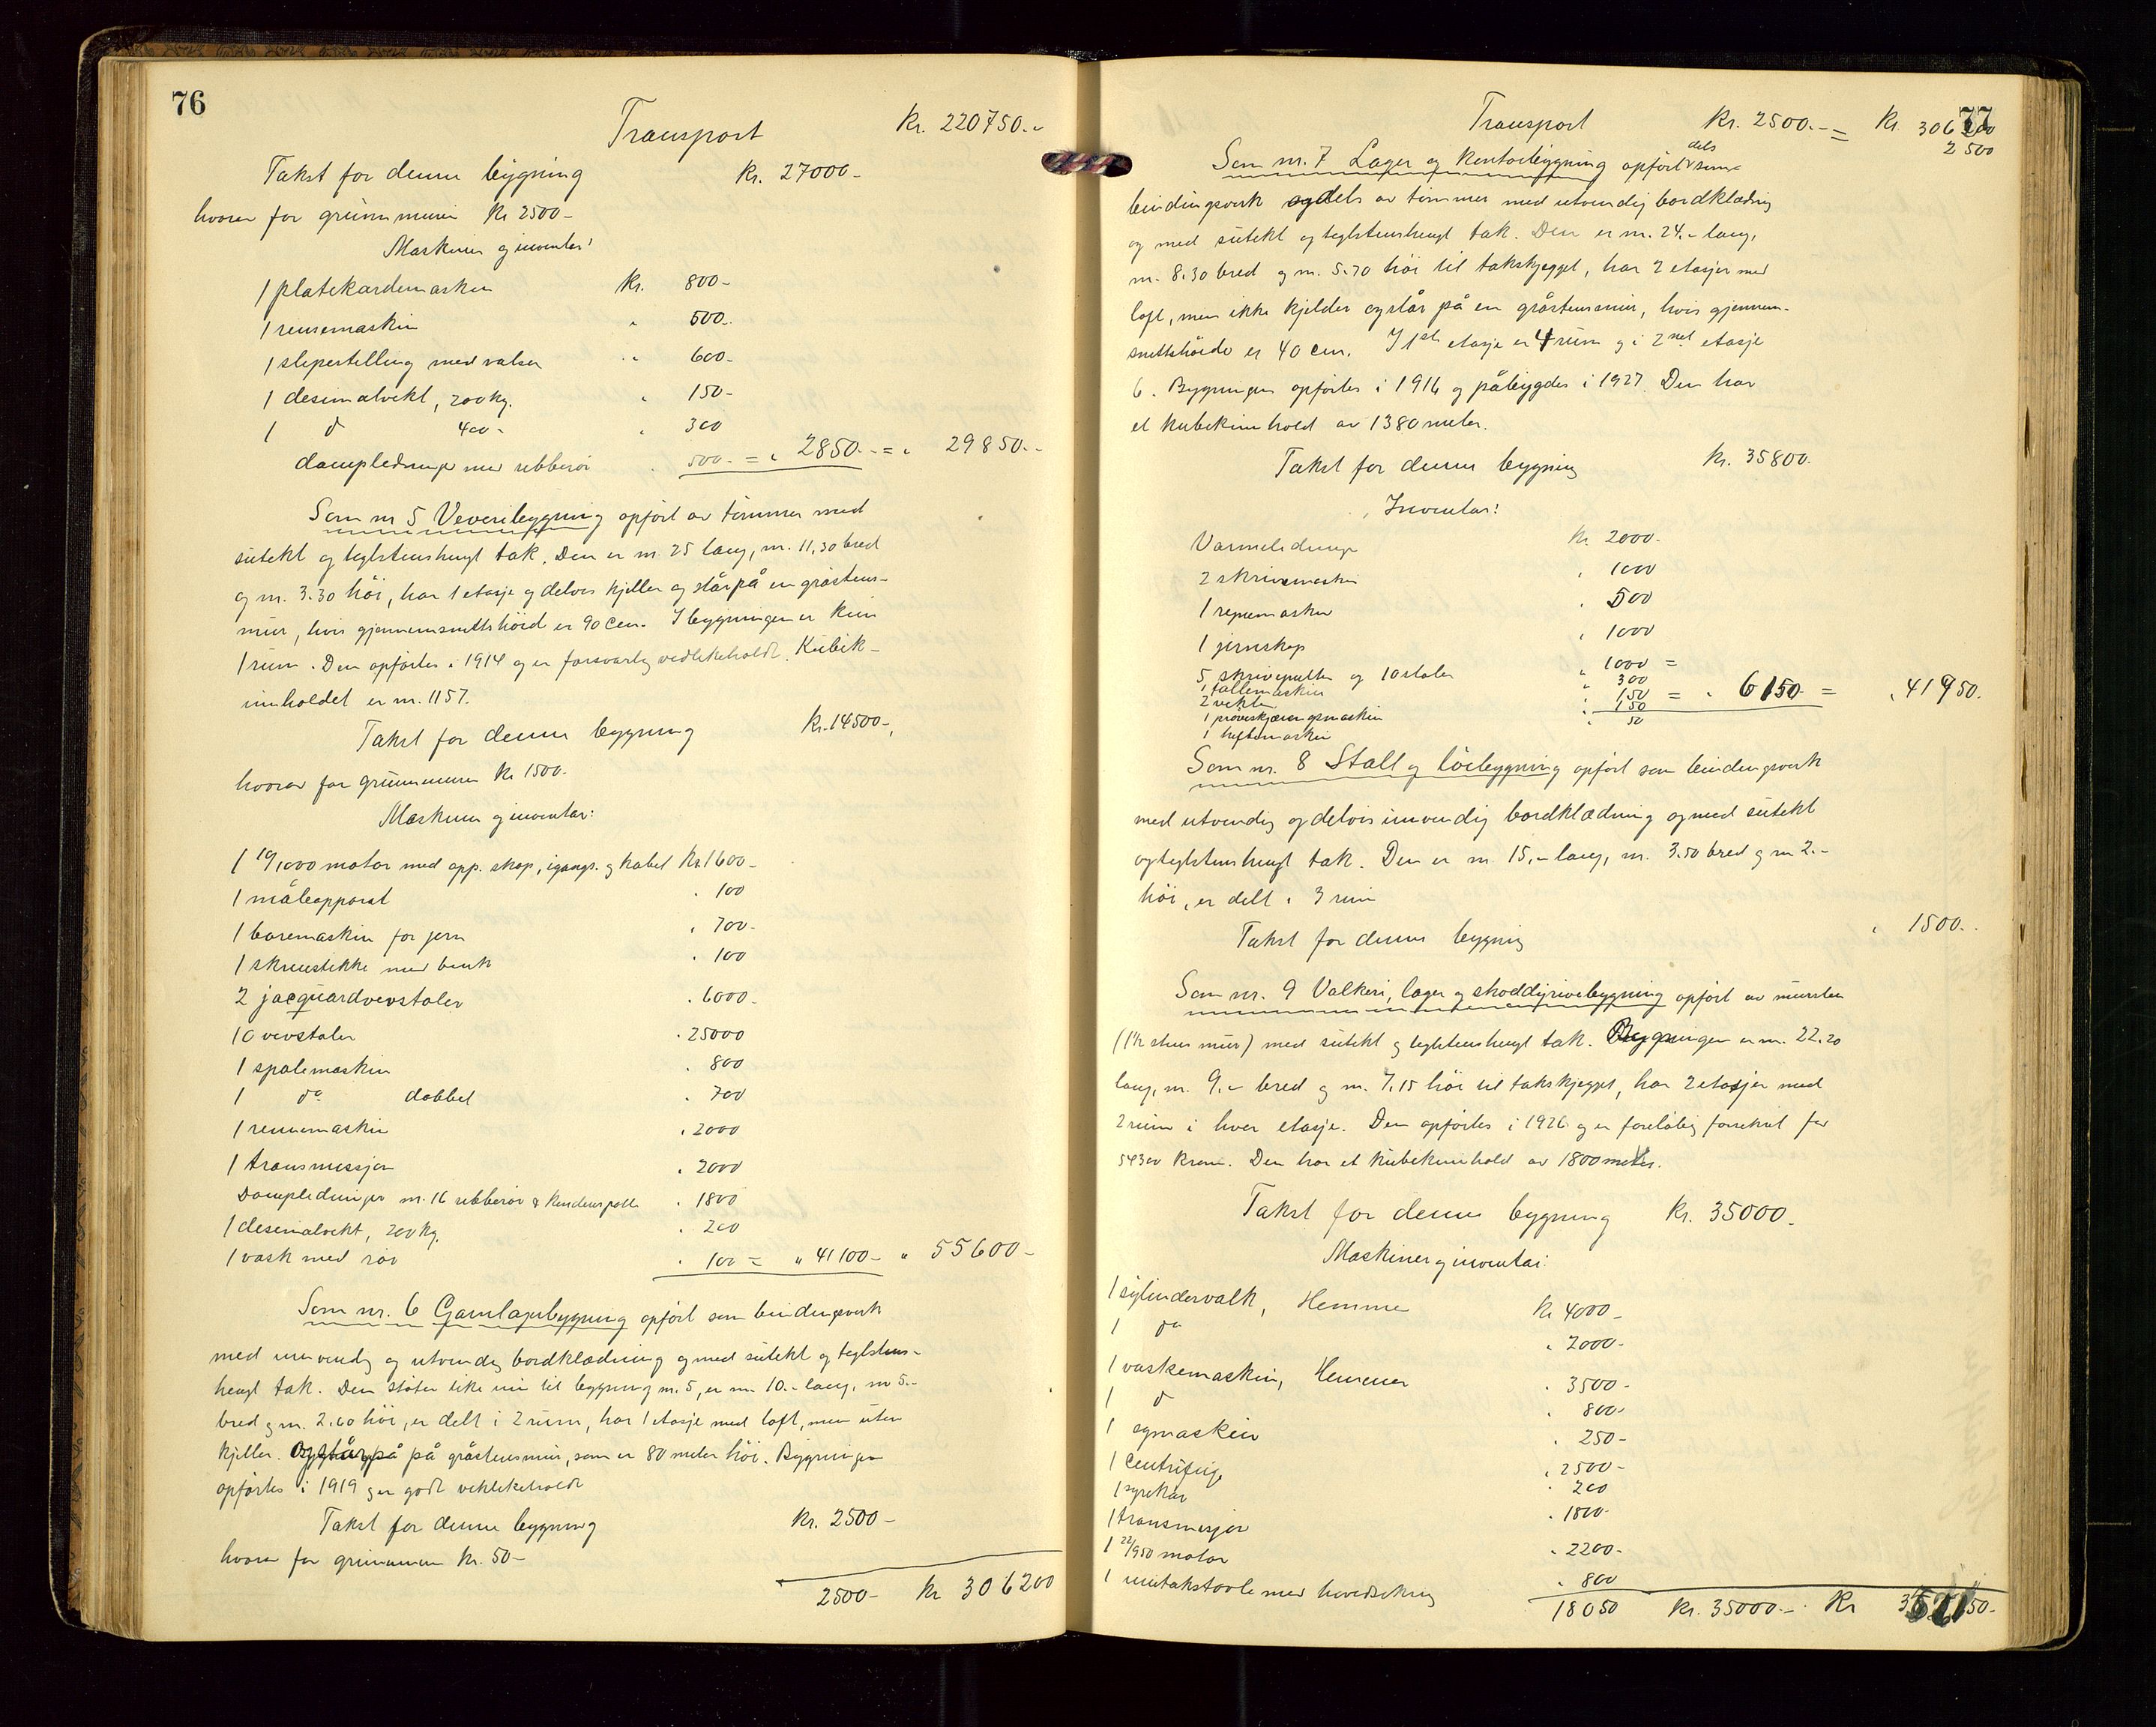 76
Transport Kr. 220750.-
Takst for denne bygning Kr. 27000-
hvorav for grunnmuren Kr 2500-
Maskiner og inventar:
1 platekardemaskin Kr. 800-
1 rensemaskin " 500-
1 slipestelling med valser " 600-
1 desimalvekt, 200 kg. " 150-
1 do 400 - " 300
dampledninger med ribberør " 500.- = " 2850.- = " 29850.-
Som nr 5 Veveribygning opført av tømmer med
sutekt og teglstenshengt tak. Den er m. 25 lang, m. 11,30 bred
og m. 3.30 høi, har 1 etasje og delvis kjeller og står på en gråstens-
mur, hvis gjennemsnittshøid er 90 cm. I bygningen er kun
1 rum. Den opførtes i 1914 og er forsvarlig vedlikeholdt. Kubik-
innholdet er m. 1157.
Takst for denne bygning Kr. 14500-,
hvorav for grunnmuren Kr 1500.
Maskiner og inventar:
1 19/1000 motor med app. skap, igangs. og kabel Kr. 1600-
1 måleapparat " 100
1 boremaskin for jern " 700-
1 skruestikke med benk " 100
2 jacquardvevstoler " 6000-
10 vevstoler " 25000
1 spolemaskin " 800
1 do dobbel " 700
1 rennemaskin " 2000
1 transmissjon " 2000
Dampledninger m. 16 ribberør & kondenspotte " 1800
1 desimalvekt, 200 kg. " 200
1 vask med rør " 100 = " 41100- " 55600-
Som nr. 6 Garnlagerbygning opført som bindingsverk
med innvendig og utvendig bordklædning og med sutekt og teglstens-
hengt tak. Den støter like inn til bygning nr. 5, er m. 10.- lang, m 5.-
bred og m. 2.60 høi, er delt i 2 rum, har 1 etasje med loft, men uten
kjeller. Og står på på gråstensmur, som er 80 meter høi. Bygningen
opførtes i 1919 og er godt vedlikeholdt
Takst for denne bygning Kr. 2500-
hvorav for grunnmuren Kr. 50-
2500- Kr 306200
77
Transport Kr. 2500.- = Kr 306200
2500
Som nr. 7 Lager og kontorbygning opført dels som
bindingsverk og dels av tømmer med utvendig bordklædning
og med sutekt og teglstenshengt tak. Den er m. 24.- lang,
m. 8.30 bred og m. 5.70 høi til takskjegget, har 2 etasjer med
loft, men ikke kjelder og står på en gråstensmur, hvis gjennem-
snittshøide er 40 cm. I 1ste etasje er 4 rum og i 2nen etasje
6. Bygningen opførtes i 1916 og påbygdes i 1927. Den har
et kubikinnhold av 1380 meter.
Takst for denne bygning Kr. 35800-
Inventar:
Varmeledninger Kr. 2000-
2 skrivemaskiner " 1000
1 regnemaskin " 500
1 jernskap " 1000
5 skrivepulter og 10 stoler " 1000 =
1 tallemaskin " 300
2 vekter " 150 = " 6150- = " 41950.
1 prøveskjæringsmaskin " 150
1 heftemaskin " 50
Som nr. 8 Stall og løebygning opført som bindingsverk
med utvendig og delvis innvendig bordklædning og med sutekt
og teglstenshengt tak. Den er m 15,- lang, m. 3.50 bred og m 2.-
høi, er delt i 3 rum
Takst for denne bygning " 1500.-
Som nr. 9 Valkeri, lager og shoddyrivebygning opført av mursten
(1½ stens mur) med sutekt og teglstenshengt tak. Bygningen er m. 22.20
lang, m. 9.- bred og m. 7.15 høi til takskjegget, har 2 etasjer med
2 rum i hver etasje. Den opførtes i 1926 og er foreløbig forsikret for
54300 kroner. Den har et kubikinnhold av 1800 meter.
Takst for denne bygning Kr. 35000-
Maskiner og inventar:
1 sylindervalk, Hemmer Kr 4000-
1 do " 2000-
1 vaskemaskin, Hemmer " 3500-
1 do " 800-
1 symaskin " 250-
1 centrifuge " 2500-
1 syrekar " 200
1 transmisjon " 1800-
1 22/950 motor " 2200-
1 inntakstavle med hovedsikring " 800
18050 Kr. 35000.- Kr